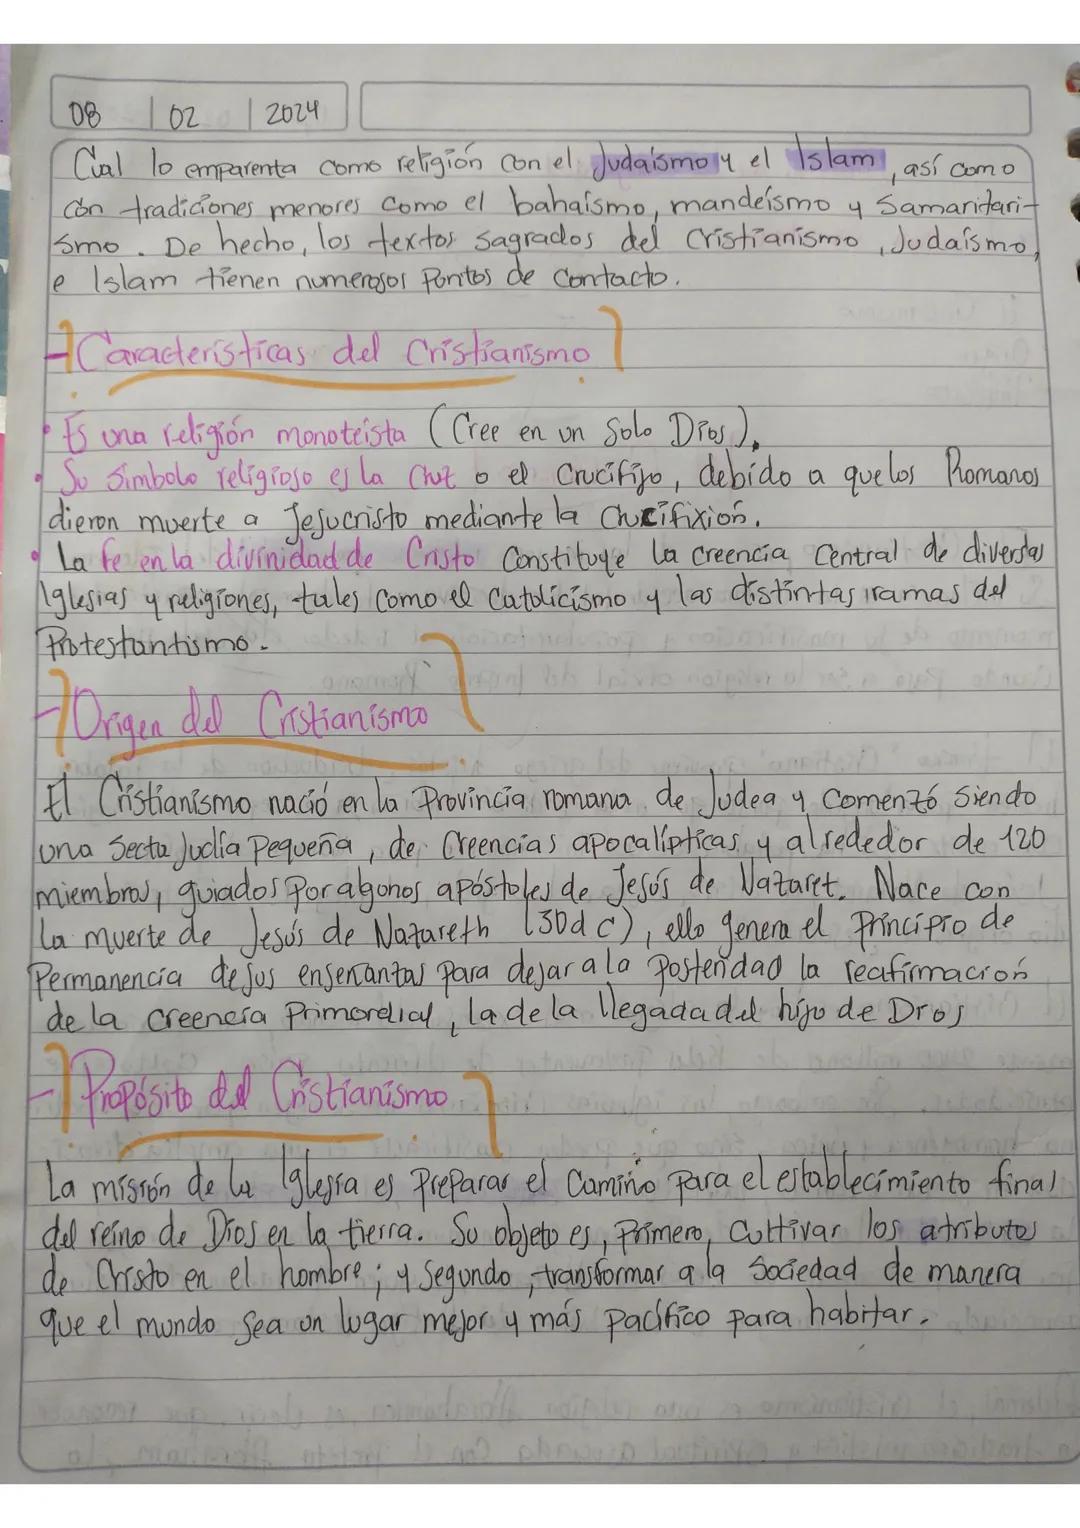 08 | 02 | 2024
Cual lo emparenta como religión con el Judaísmo y el Islam, así como
con tradiciones menores como el bahaísmo, mandeísmo y Samaritari-
smo. De hecho, los textos sagrados del Cristianismo, Judaísmo,
e Islam tienen numerosos Puntos de Contacto.
- Características del Cristianismo
• Es una religión monoteísta (Cree en un Solo Dios).
• Su Símbolo religioso es la Cruz o el Crucifijo, debido a que los Romanos
dieron muerte a Jesucristo mediante la Crucifixión.
• La fe en la divinidad de Cristo Constituye la creencia Central de diversas
Iglesias y religiones, tales como el Catolicismo y las distintas ramas del
Protestantismo.
- Origen del Cristianismo
El Cristianismo nació en la Provincia romana de Judea y Comenzó Siendo
una Secta Judía Pequeña, de Creencias apocalípticas y alrededor de 120
miembros, guiados Por algunos apóstoles de Jesús de Nazaret. Nace con
la muerte de Jesús de Nazareth (30d c), ello genera el Principio de
Permanencia de sus enseñanzas Para dejar a la Posteridad la reafirmación
de la creencia Primordial, la de la llegada del hijo de Dios
- Propósito del Cristianismo
La misión de la Iglesia es Preparar el Camino Para el establecimiento final
del reino de Dios en la tierra. Su objeto es, Primero, Cultivar los atributos
de Christo en el hombre; y Segundo, transformar a la Sociedad de manera
que el mundo Sea un lugar mejor y más Pacífico Para habitar.